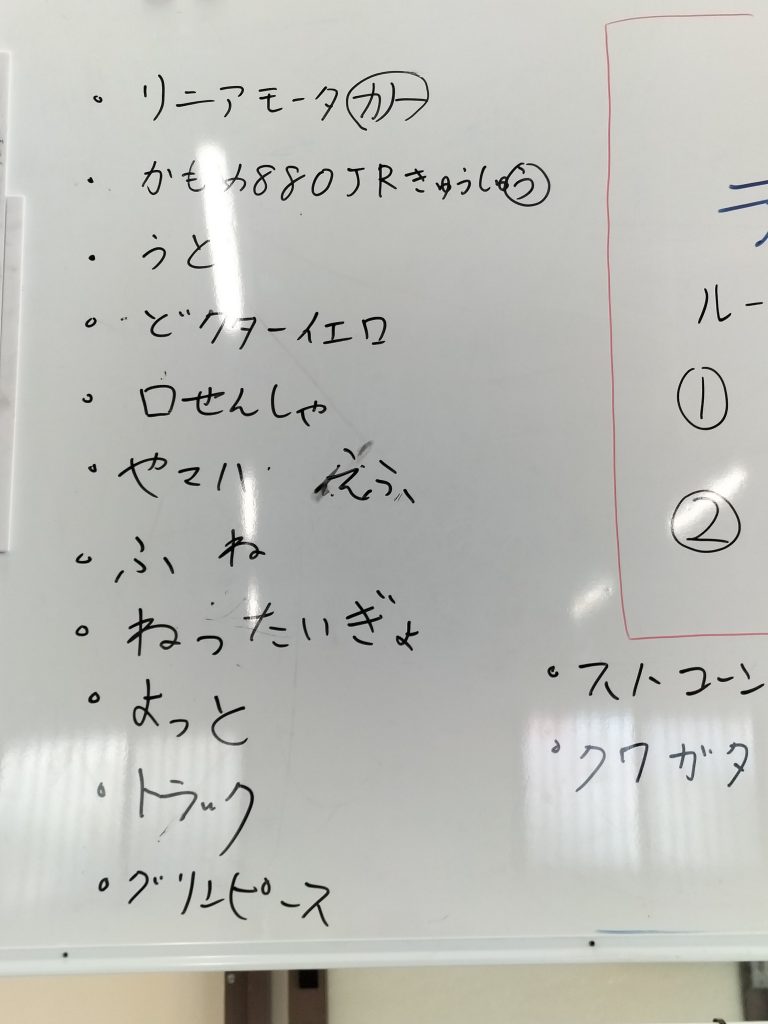 ・リニアモータカー
・かもめ880JRきゅうしゅう
・うど
・ドクターイエロ
・口せんしゃ
・やマハ えふ
・ふね
・ねったいぎょ
・よっと
・トラック
・グリンピース
ルー
①
②
・ストコーン
・クワガタ